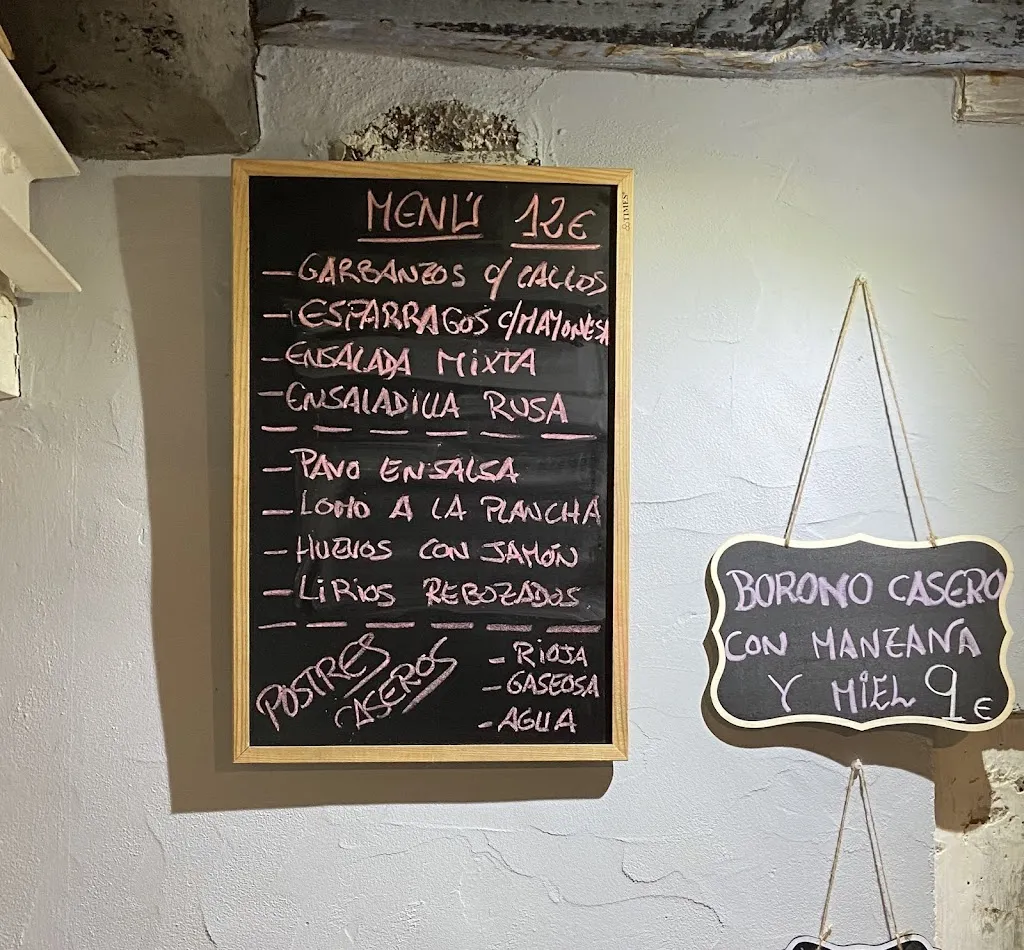 MENÚ 12€
TIMES
- GARBANZOS C/ CALLOS
- ESPARRAGOS C/MAYONESA
- ENSALADA MIXTA
- ENSALADILLA RUSA
- PAVO EN SALSA
- LOMO A LA PLANCHA
- HUEVOS CON JAMÓN
- LIRIOS REBOZADOS
POSTRES
CASEROS
- RIOJA
- GASEOSA
- AGUA
BORONO CASERO
CON MANZANA
Y MIEL 9€